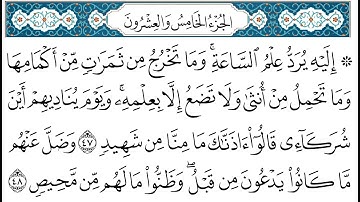 الجزء الخامس والعشرون
۞ إِلَيْهِ يُرَدُّ عِلْمُ ٱلسَّاعَةِۚ وَمَا تَخْرُجُ مِن ثَمَرَٰتٍ مِّنْ أَكْمَامِهَا
وَمَا تَحْمِلُ مِنْ أُنثَىٰ وَلَا تَضَعُ إِلَّا بِعِلْمِهِۦۚ وَيَوْمَ يُنَادِيهِمْ أَيْنَ
شُرَكَآءِى قَالُوٓا۟ ءَاذَنَّٰكَ مَا مِنَّا مِن شَهِيدٍ ٤٧ وَضَلَّ عَنْهُم
مَّا كَانُوا۟ يَدْعُونَ مِن قَبْلُۖ وَظَنُّوا۟ مَا لَهُم مِّن مَّحِيصٍ ٤٨